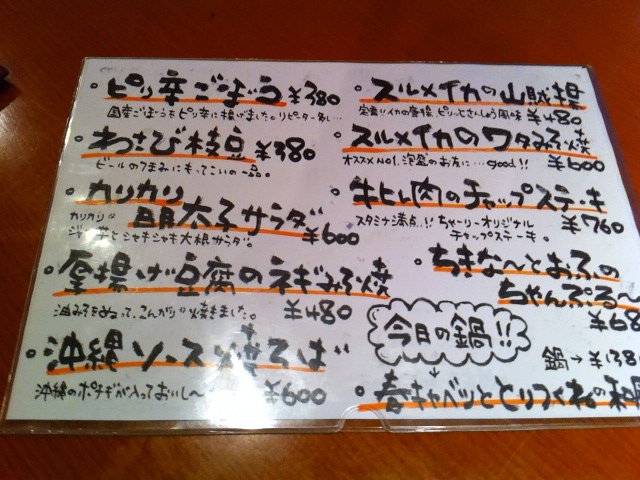 ・ピリ辛ごぼう ¥380
国産ごぼうをピリ辛に揚げました。リピーター多し…
・わさび枝豆 ¥380
ビールのつまみにもってこいの一品。
・カリカリ明太子サラダ ¥600
カリカリ
ジャコとシャキシャキ大根サラダ。
・厚揚げ豆腐のネギみそ焼
油みそをぬって、こんがり焼きました。 ¥480
・沖縄ソース焼そば
沖縄のポチギが入っておいし〜 ¥600
・スルメイカの山賊揚
定番!!イカの唐揚、ピリッとさんしょう風味 ¥480
・スルメイカのワタみそ焼
オススメNO1.泡盛のお友に…good!! ¥600
・牛ヒレ肉のチャップステーキ
スタミナ満点..!! ちゃーりーオリジナル ¥760
チャップステーキ。
・ちきな〜とおふの
ちゃんぷる〜
¥68
今日の鍋!!
鍋→¥138
・春キャベツととりつくねの